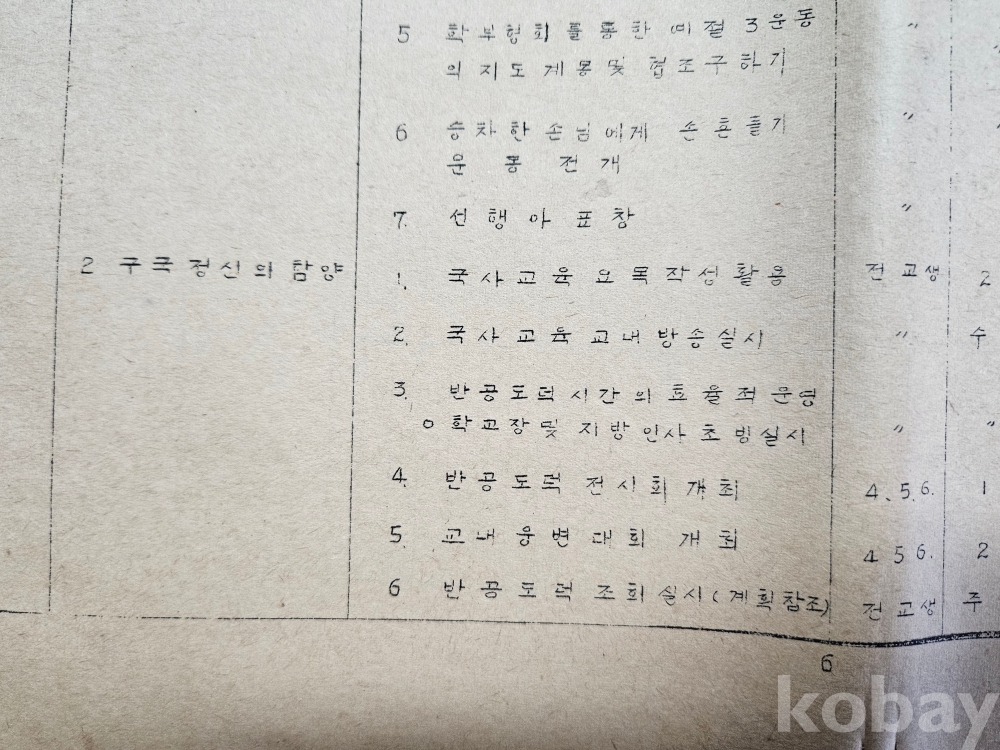 5 학부형회를통한 예절 3운동 〃
의지도계몽및 협조구하기
6 승차한손님에게 손흔들기 〃
운동전개
7. 선행아표창 〃
2 구국정신의함양 1. 국사교육요목작성활용 전교생 2
2. 국사교육교내방송실시 〃 수
3. 반공도덕시간의효율적운영
○학교장및 지방인사초빙실시 〃 〃
4. 반공도덕 전시회개최 4.5.6. 1
5. 교내웅변대회 개최 4 5 6. 2
6 반공도덕 조회실시(계획참조) 전교생 주
6
kobay